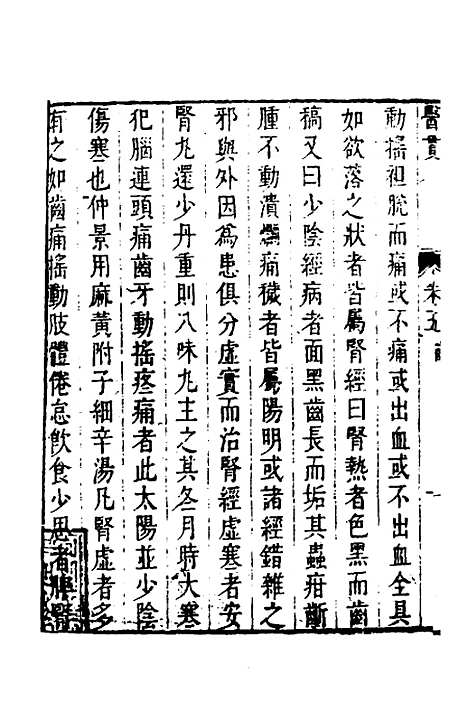 醫貫 卷五
動搖袒脫而痛或不痛或出血或不出血全具
如欲落之狀者皆屬腎經曰腎熱者色黑而齒
槁又曰少陰經病者面黑齒長而垢其蟲疳齗
腫不動潰爛痛穢者皆屬陽明或諸經錯雜之
邪與外因為患俱分虛實而治腎經虛寒者安
腎丸還少丹重則八味丸主之其冬月時大寒
犯腦連頭痛齒牙動搖疼痛者此太陽並少陰
傷寒也仲景用麻黃附子細辛湯凡腎虛者多
有之如齒痛搖動肢體倦怠飲食少思者脾腎